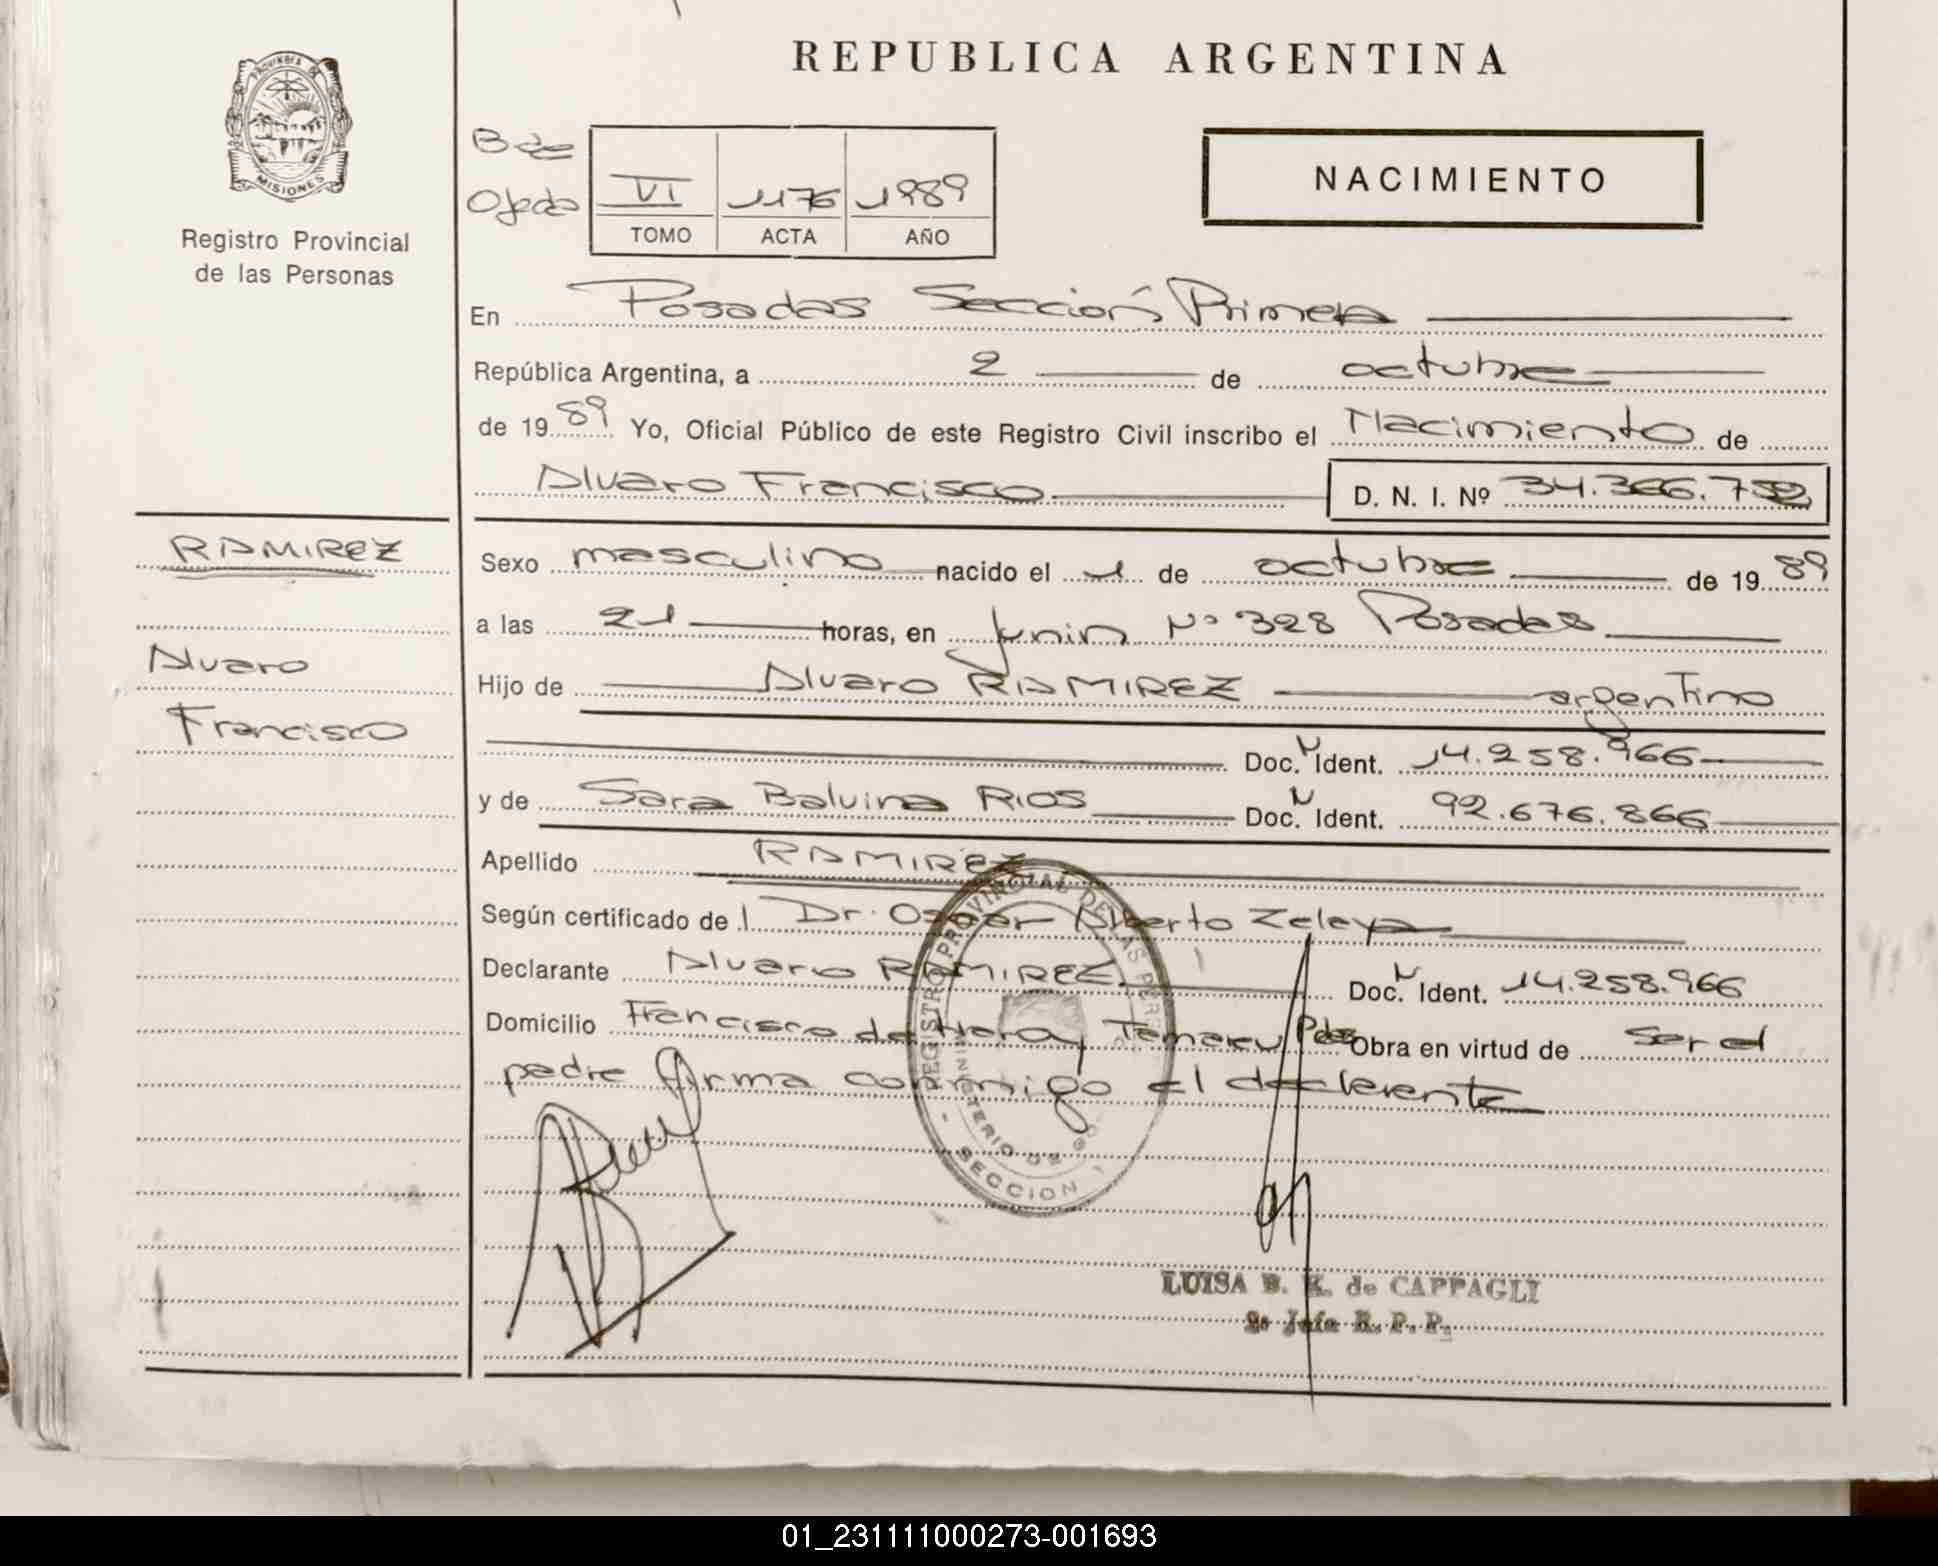 PROVINCIA DE
MISIONES
Registro Provincial
de las Personas
REPUBLICA ARGENTINA
Ojeda
VI 1176 1989
TOMO ACTA AÑO
NACIMIENTO
En Posadas Sección Primera
República Argentina, a 2 de octubre
de 1989 Yo, Oficial Público de este Registro Civil inscribo el Nacimiento de
Alvaro Francisco D. N. I. Nº 34.366.752
RAMIREZ
Alvaro
Francisco
Sexo masculino nacido el 1 de octubre de 1989
a las 21 horas, en Junin Nº 328 Posadas
Hijo de Alvaro RAMIREZ argentino
Doc. N Ident. 14.258.966
y de Sara Balvina RIOS Doc. N Ident. 92.676.866
Apellido RAMIREZ
Según certificado de l Dr. Oscar Alberto Zelaya
Declarante Alvaro RAMIREZ. Doc. N Ident. 14.258.966
Domicilio Francisco de Haro y Pdas Obra en virtud de ser el
padre firma conmigo el declarante
REGISTRO PROVINCIAL DE LAS PERS
MINISTERIO DE GO
SECCION 1
LUISA B. K. de CAPPAGLI
2º Jefe R. P. P.
01_231111000273-001693